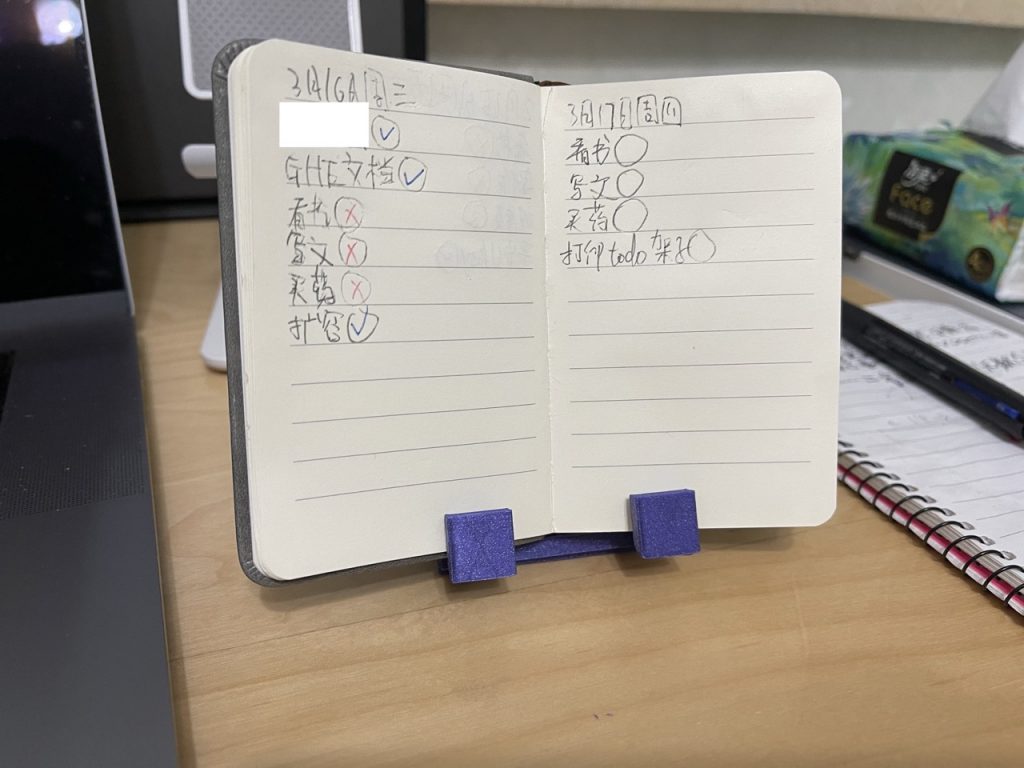 3月16日周三
GHE文档
看书
写文
买药
扩容
3月17日周四
看书
写文
买药
打印todo架子
Face